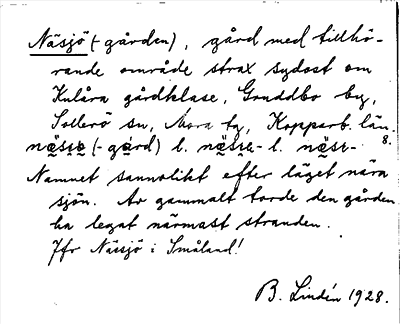 Näsjö (-gården), gård med tillhö-
rande område strax sydost om
Kulåra gårdklase, Gruddbo by,
Sollerö sn, Mora tg, Kopparb. län.
näsɩ̯e (-gard) l. näsɩe- l. näsɩ- 8.
Namnet sannolikt efter läget nära
sjön. Av gammalt torde den gården
ha legat närmast stranden.
Jfr Nässjö i Småland!
B. Lindén 1928.